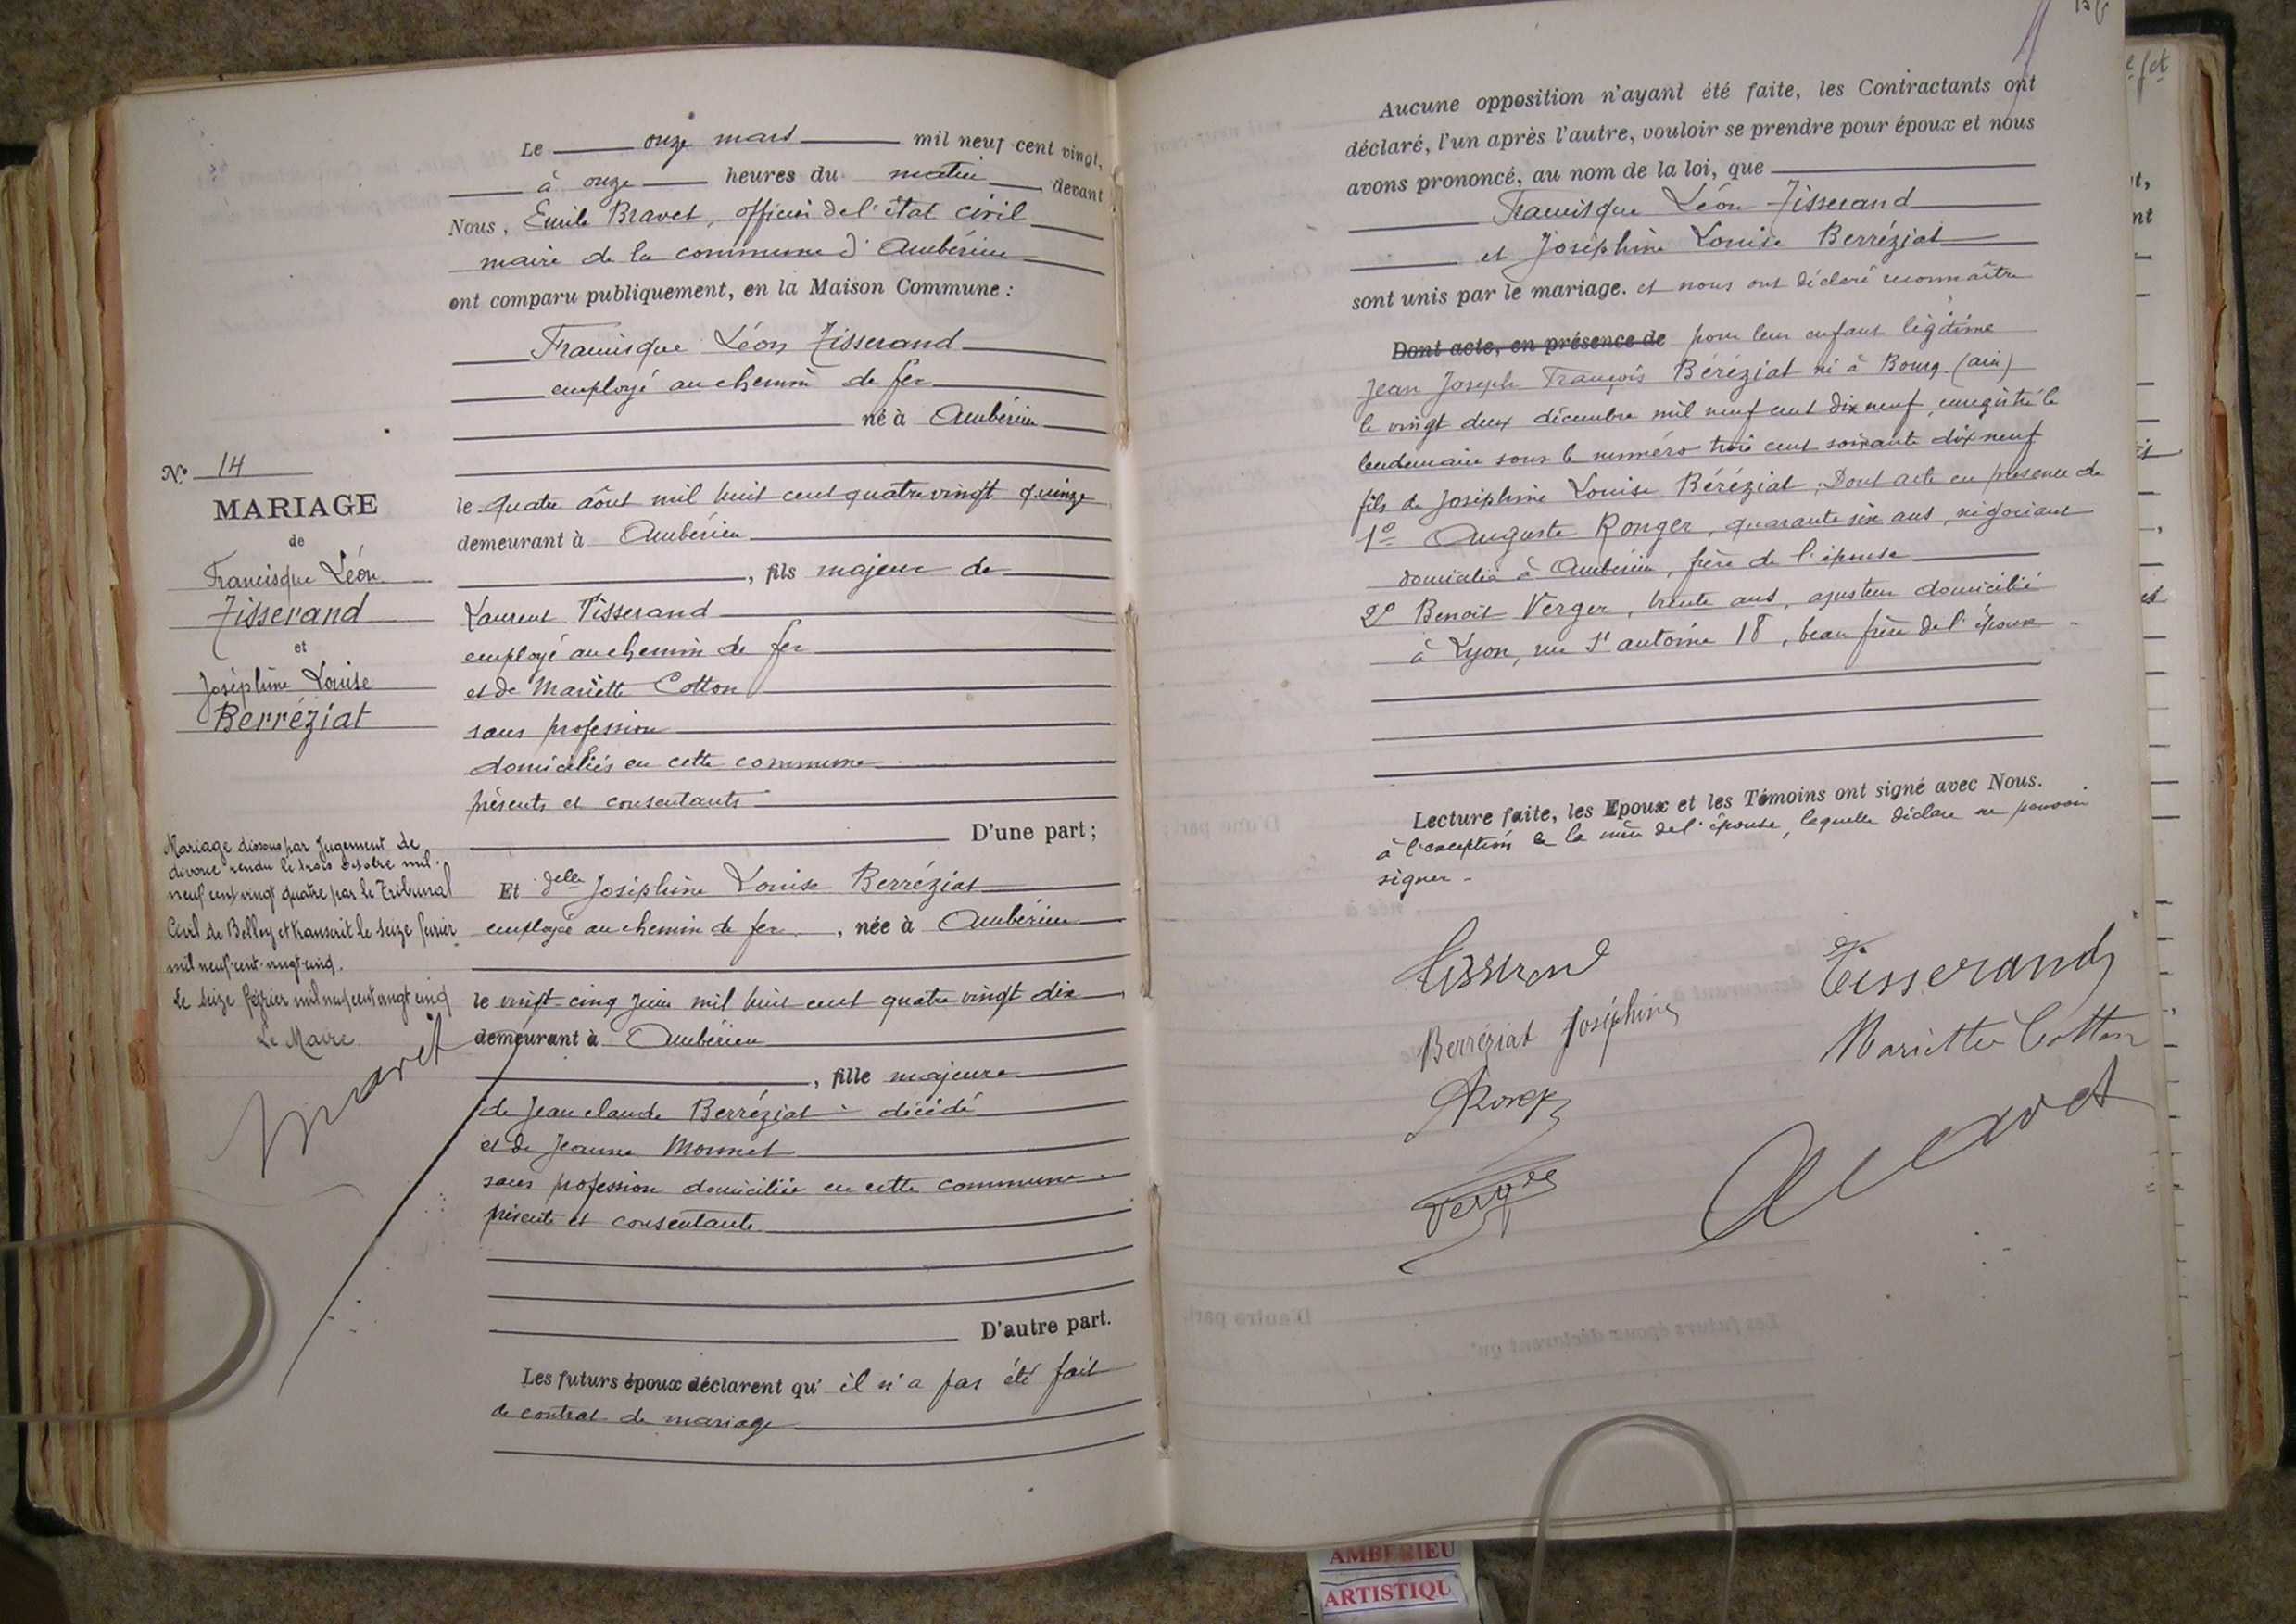 Le onze mars mil neuf cent vingt,
à onze heures du matin devant
Nous, Emile Bravet, officier de l'état civil
maire de la commune d'Ambérieu
ont comparu publiquement, en la Maison Commune :
Francisque Léon Tisserand
employé au chemin de fer
né à Ambérieu
le quatre août mil huit cent quatre vingt quinze
demeurant à Ambérieu
, fils majeur de
Laurent Tisserand
employé au chemin de fer
et de Mariette Cotton
sans profession
domiciliés en cette commune
présents et consentants
D'une part ;
Et delle Joséphine Louise Berréziat
employée au chemin de fer, née à Ambérieu
le vingt-cinq juin mil huit cent quatre vingt dix
demeurant à Ambérieu
, fille majeure
de Jean claude Berréziat - décédé
et de Jeanne Monnet
sans profession domiciliée en cette commune
présente et consentante
D'autre part.
Les futurs époux déclarent qu'il n'a pas été fait
de contrat de mariage
N° 14
MARIAGE
de
Francisque Léon
Tisserand
et
Joséphine Louise
Berréziat
Mariage dissous par Jugement de
divorce rendu le trois octobre mil
neuf cent vingt quatre par le Tribunal
Civil de Belley et transcrit le seize février
mil neuf cent vingt cinq.
Le seize février mil neuf cent vingt cinq
Le Maire
Aucune opposition n'ayant été faite, les Contractants ont
déclaré, l'un après l'autre, vouloir se prendre pour époux et nous
avons prononcé, au nom de la loi, que
Francisque Léon Tisserand
et Joséphine Louise Berréziat
sont unis par le mariage. et nous ont déclaré reconnaître
Dont acte, en présence de pour leur enfant légitime
Jean Joseph François Béréziat né à Bourg (ain)
le vingt deux décembre mil neuf cent dix neuf, enregistré le
lendemain sous le numéro trois cent soixante dix neuf
fils de Joséphine Louise Béréziat ; Dont acte en présence de
1° Auguste Ronger, quarante six ans, négociant
domicilié à Ambérieu, frère de l'épouse
2° Benoit Verger, trente ans, ajusteur domicilié
à Lyon, rue St antoine 18, beau frère de l'époux
Lecture faite, les Epoux et les Témoins ont signé avec Nous.
à l'exception de la mère de l'épouse, laquelle déclare ne pouvoir
signer -
Tisserand
Tisserand
Berréziat Joséphine
Mariette Cotton
AMBERIEU
ARTISTIQU